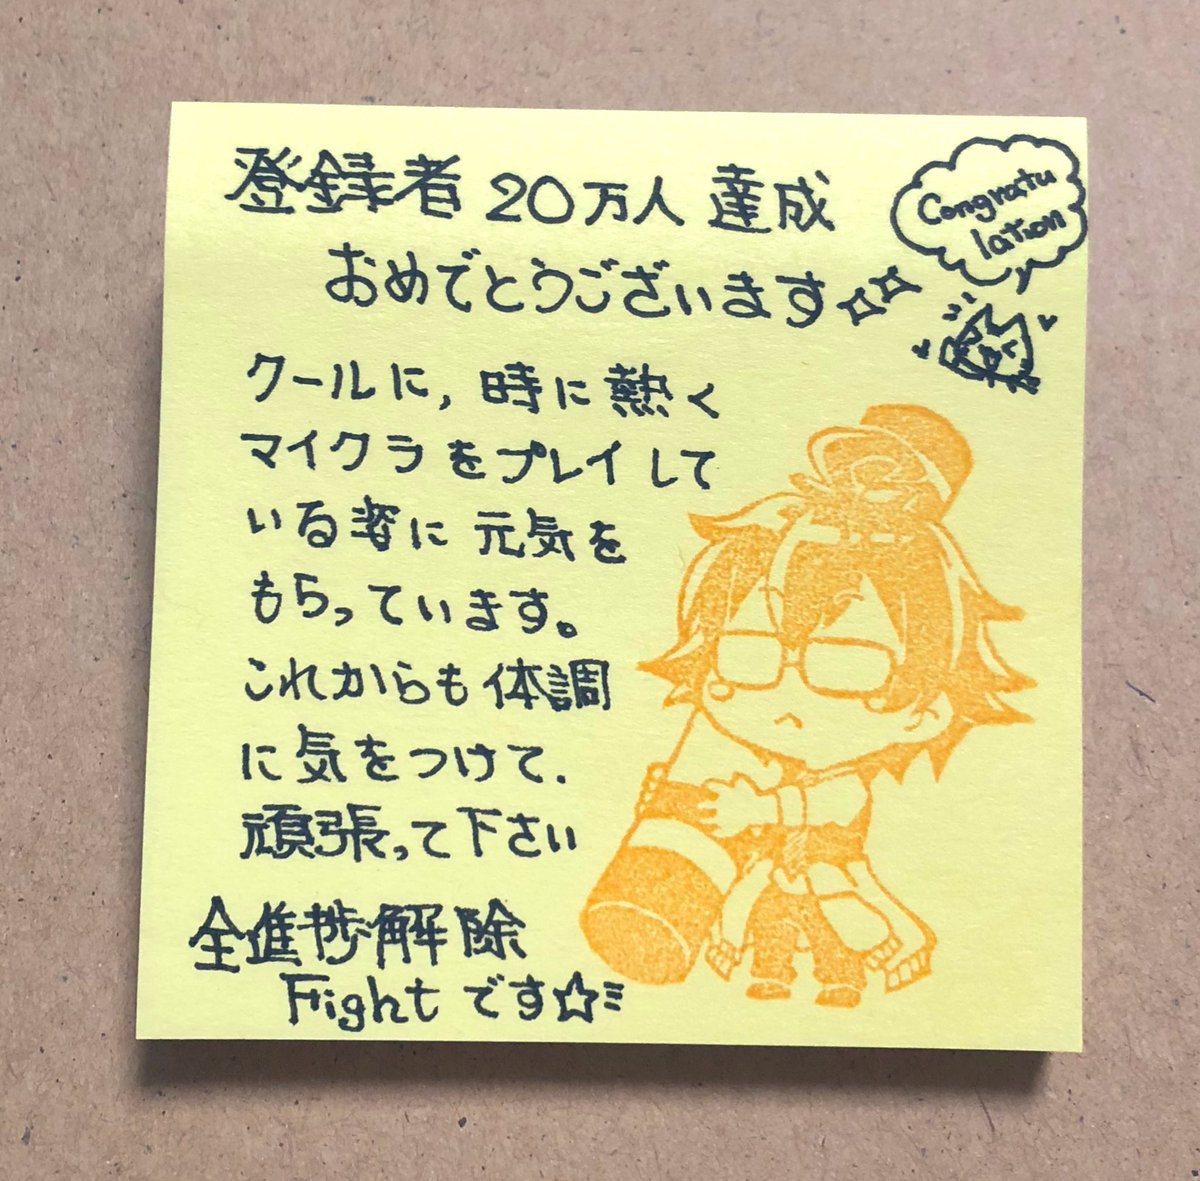 登録者 20万人 達成
おめでとうございます
Congratu
lation
クールに, 時に熱く
マイクラをプレイして
いる姿に 元気を
もらっています。
これからも体調
に気をつけて.
頑張って下さい
全進捗解除
Fight です☆ミ